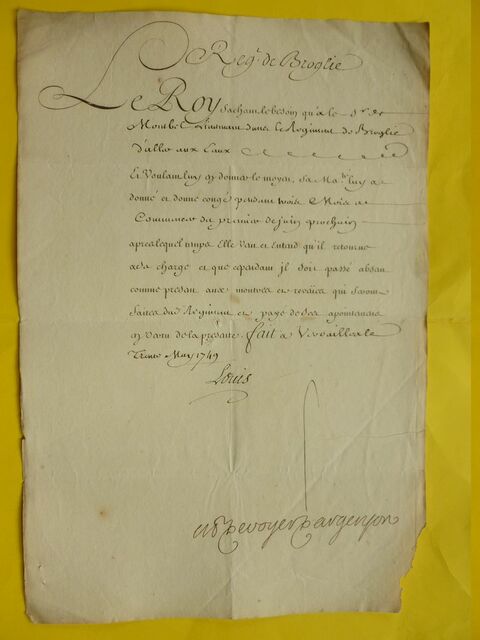 Regt. de Broglie
Le Roy Sachant le besoin qu'a le Sr. de
Monbel Lieutenant dans le Regiment de Broglie
d'aller aux Eaux
Et Voulant luy en donner le moyen, Sa Mate. luy a
donné et donne congé pendant trois Mois a
Commencer du premier de juin prochain
apres lequel temps Elle Veut et Entend qu'il retourne
a sa charge et que cependant il soit passé absent
comme present aux montres et reveües qui seront
faites dud. Regiment et payé de ses apointemens
en vertu de la presente. fait a Versailles le
Trente May 1749
Louis
de Voyer d'argenson